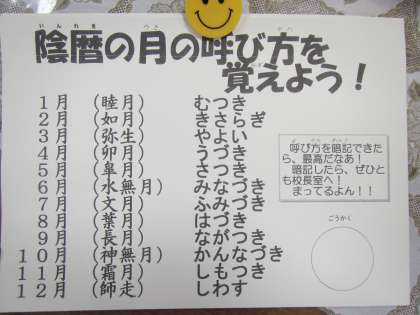 いんれき つき よ かた
陰暦の月の呼び方を
おぼ
覚えよう！
1月 (睦月) むつき
2月 (如月) きさらぎ
3月 (弥生) やよい
4月 (卯月) うづき
5月 (皐月) さつき
6月 (水無月) みなづき
7月 (文月) ふみづき
8月 (葉月) はづき
9月 (長月) ながつき
10月 (神無月) かんなづき
11月 (霜月) しもつき
12月 (師走) しわす
呼び方を暗記できた
ら、最高だなあ！
暗記したら、ぜひと
も校長室へ！
まってるよん！！
ごうかく